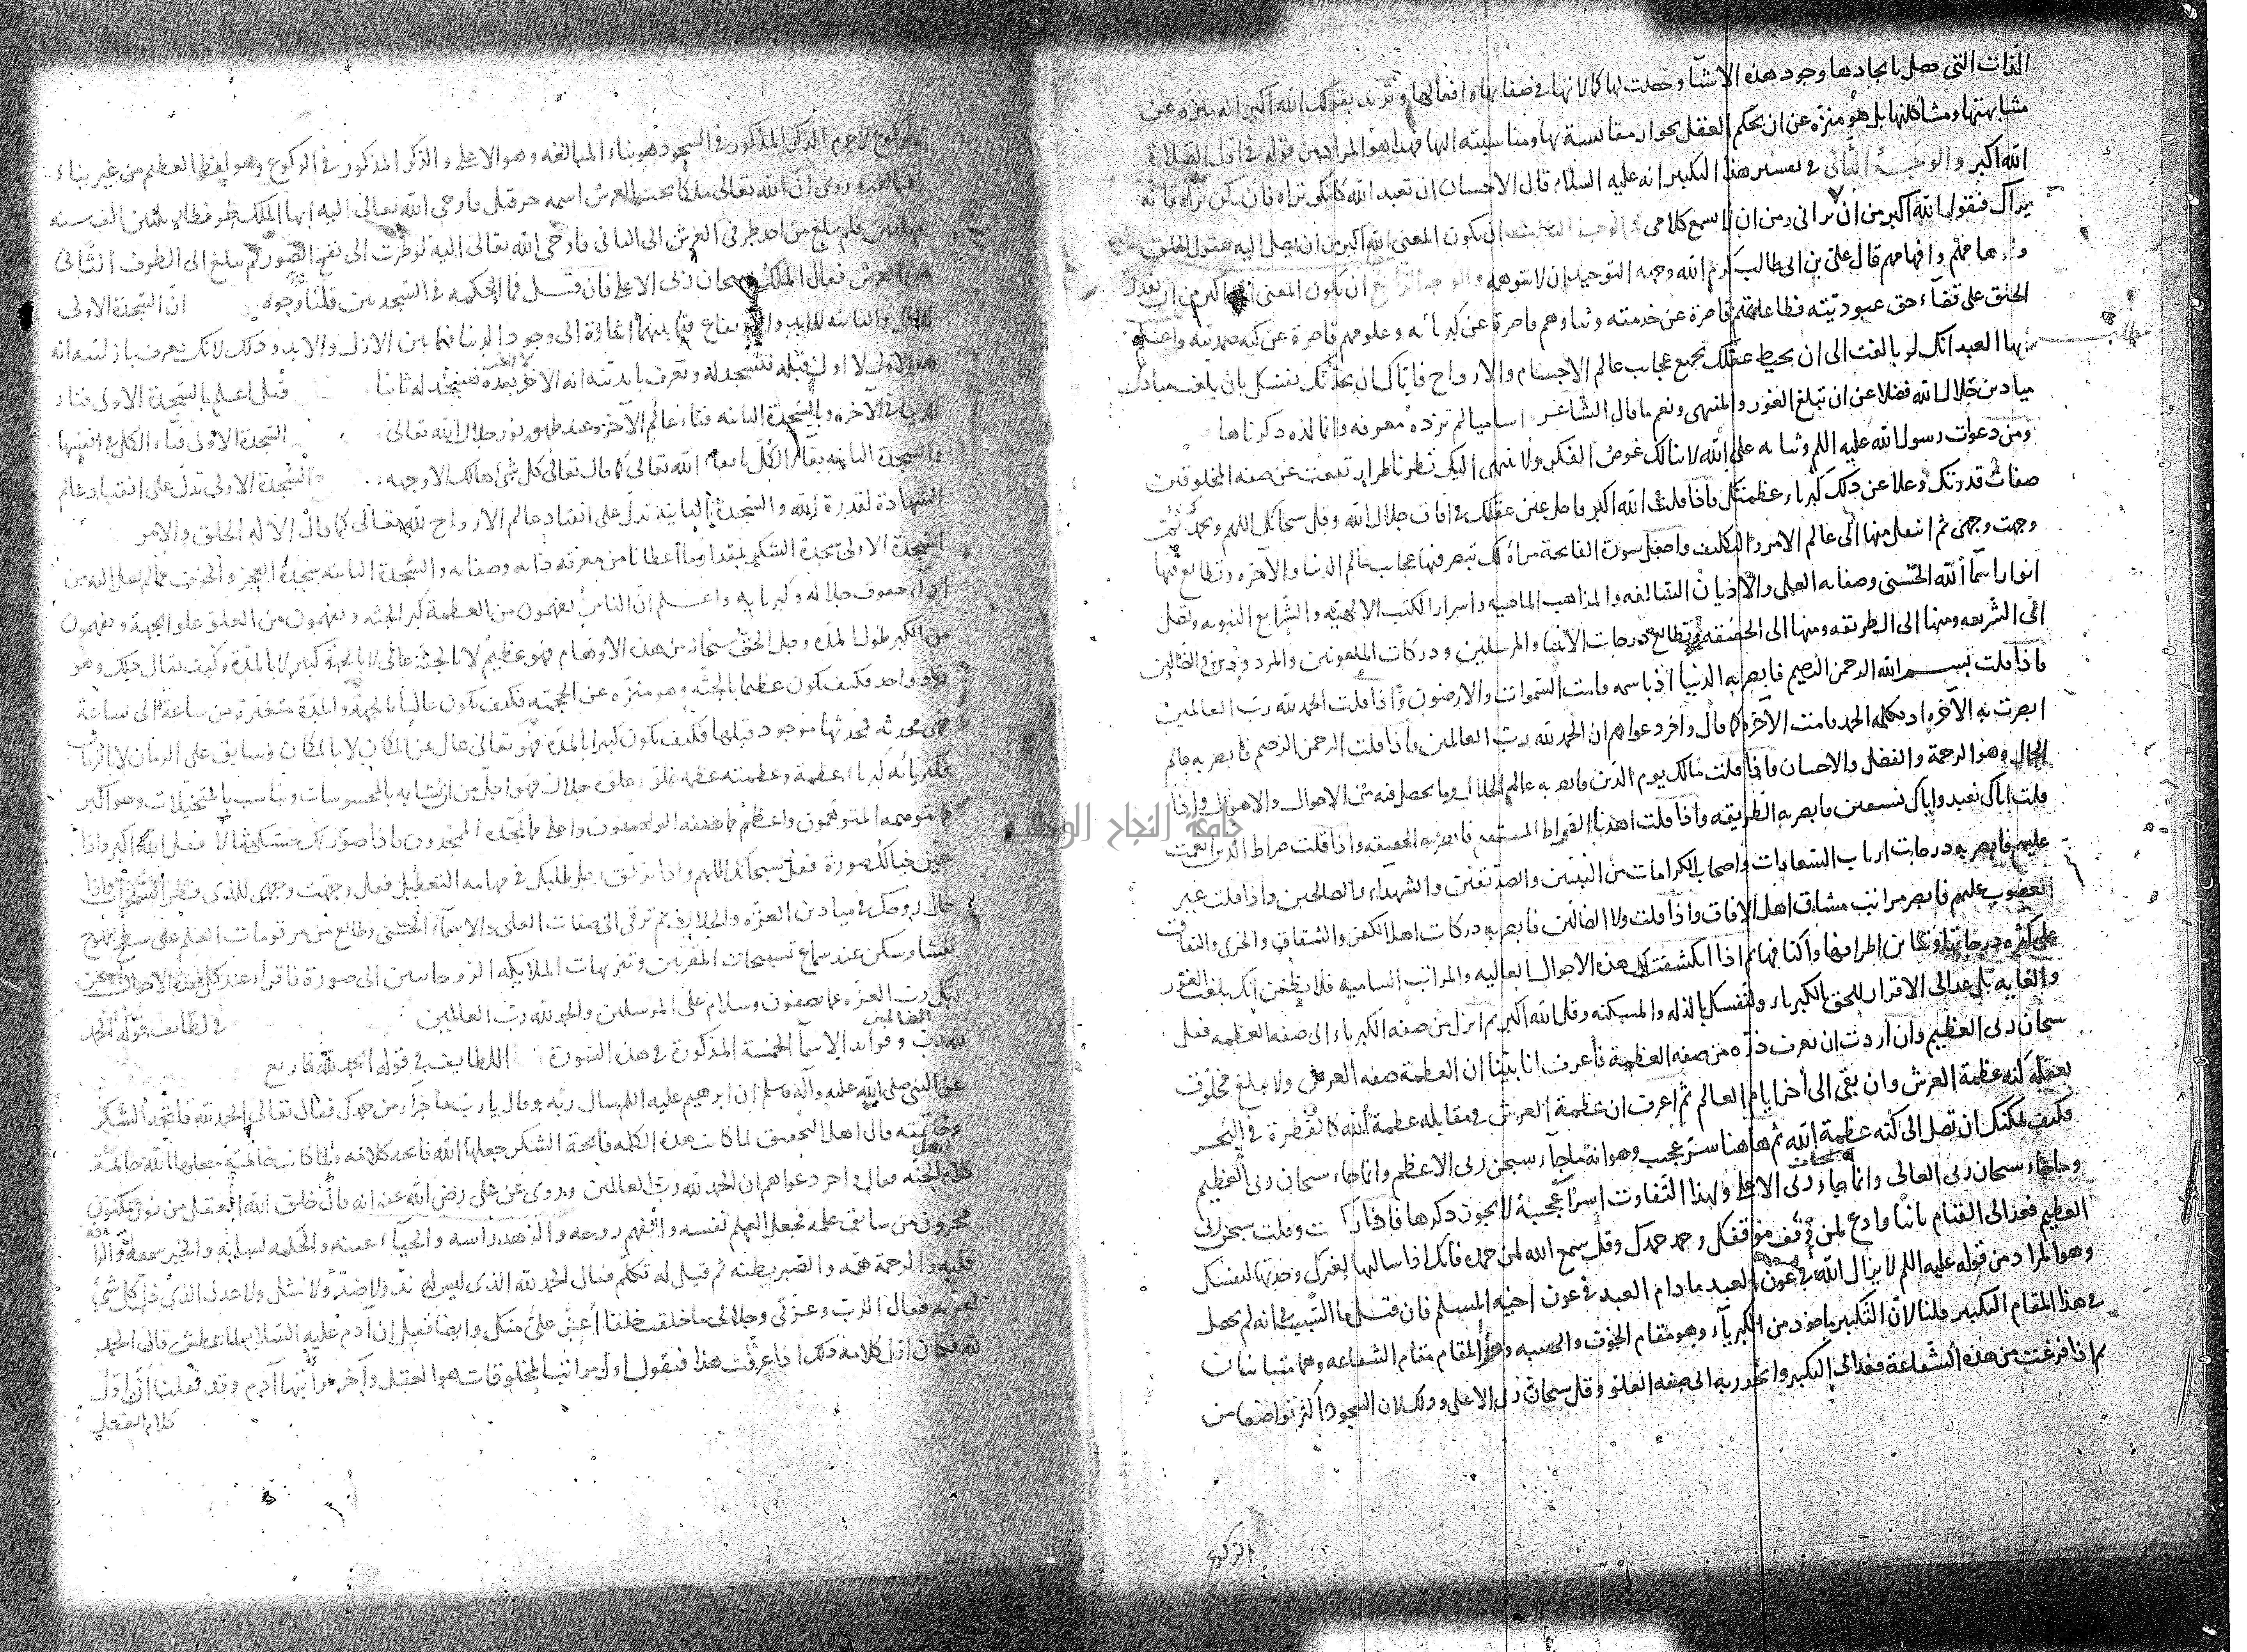 الذات التى حصل بايجادها وجود هذه الاشيآ وحصلت لها كمالاتها فى صفاتها وافعالها وتريد بقولك الله اكبر انه منزّه عن
مشابهتها ومشاكلتها بل هو منزّه عن ان يحكم العقل بجواز مقايسته بها ومناسبته اليها فهذا هو المراد من قوله فى اوّل الصّلاة
الله اكبر والوجه الثّانى فى تفسير هذا التكبير انه عليه السلام قال الاحسان ان تعبد الله كانك تراه فان لم تكن تراه فانّه
يراك فتقول الله اكبر من ان لا يرانى ومن ان لا يسمع كلامى والوجه الثالث ان يكون المعنى الله اكبر من ان يصل اليه عقول الخلق
وافهامهم قال علىّ بن ابى طالب كرم الله وجهه التوحيد ان لا تتوهمه والوجه الرّابع ان يكون المعنى الله اكبر من ان يقدر
الخلق على قضآء حق عبوديّته فطاعاتهم قاصرة عن خدمته وثناوهم قاصرة عن كبريآئه وعلومهم قاصرة عن كنه صمديّته واعلم
ايها العبد انك لو بالغت الى ان يحيط عقلك بجميع عجايب عالم الاجسام والارواح فاياك ان تحدّثك نفسك بانك بلغت مبادى
ميادين جلال الله فضلا عن ان تبلغ الغور والمنتهى ونعم ما قال الشّاعر اساميا لم تزده معرفه وانما لذه ذكرناها
ومن دعوات رسول الله عليه اللم وثنايه على الله لا ينالك غوص الفكر ولا ينتهى اليك نظر ناظر ارتفعت عن صفه المخلوقين
صفات قدرتك وعلا عن ذلك كبرياء عظمتك فاذا قلت الله اكبر فاجعل عين عقلك فى افاق جلال الله وقل سبحانك اللهم وبحمدك ثم
وجهت وجهى ثم انتقل منها الى عالم الامر والتكليف واجعل سورة الفاتحة مرآة لك تبصر فيها عجايب عالم الدنيا والآخره وتطالع فيها
انوار اسمآ الله الحسنى وصفاته العلى والاديان السّالفه والمذاهب الماضيه واسرار الكتب الالهيّه والشّرايع النبويه وتصل
الى الشّريعه ومنها الى الطريقه ومنها الى الحقيقه وتطالع درجات الانبيا والمرسلين ودركات الملعونين والمردودين والضالين
فاذا قلت بسم الله الرحمن الرحيم فابصر به الدنيا اذ باسمه قامت السّموات والارضون واذا قلت الحمد لله ربّ العالمين
ابصرت به الآخره اذ بكلمه الحمد قامت الآخرة كما قال واخر دعواهم ان الحمد لله ربّ العالمين فاذا قلت الرحمن الرّحيم فابصر به عالم
الجمال وهو الرحمة والفضل والاحسان فاذا قلت مالك يوم الدّين فابصر به عالم الجلال وما يحصل فيه من الاحوال والاهوال واذا
قلت ايّاك نعبد واياك نستعين فابصر به الطّريقه واذا قلت اهدنا الصراط المستقيم فابصر به الحقيقه واذا قلت صراط الذين انعمت
عليهم فابصر به درجات ارباب السّعادات واصحاب الكرامات من النبيّين والصدّيقين والشهداء والصالحين واذا قلت غير
المغضوب عليهم فابصر مراتب فسّاق اهل الافاق واذا قلت ولا الضالّين فابصر به دركات اهل الكفر والشقاق والخزى والنفاق
على كثرة درجاتها وتباين اطرافها واكنافها ثم اذا انكشفت لك هذه الاحوال العاليه والمراتب السّاميه فلا تظنّن انك بلغت الغور
والغايه بل عد الى الاقرار للحق بالكبرياء ولنفسك بالذله والمسكنه وقل الله اكبر ثم انزل من صفه الكبرياء الى صفه العظمه فقل
سبحان ربى العظيم وان اردت ان تعرف ذرّه من صفه العظمة فاعرف انا بيّنا ان العظمة صفه العرش ولا يبلغ مخلوق
بعقله كنه عظمة العرش وان بقى الى اخر ايام العالم ثم اعرف ان عظمة العرش فى مقابله عظمة الله كالقطرة فى البحر
فكيف يمكنك ان تصل الى كنه عظمة الله ثم هاهنا سرّ عجيب وهو انه ما جآء سبحن ربى الاعظم وانما جاء سبحان ربى العظيم
وما جاء سبحان ربى العالى وانما جاء سبحان ربى الاعلى ولهذا التّفاوت اسرار عجيبة لا يجوز ذكرها فاذا ركعت وقلت سبحن ربى
العظيم فعد الى القيام ثانيا وادع لمن وقف موقفك وحمد حمدك وقل سمع الله لمن حمده فانك اذا سالتها لغيرك وجدتها لنفسك
وهو المراد من قوله عليه اللم لا يزال الله فى عون العبد ما دام العبد فى عون اخيه المسلم فان قيل ما السّبب فى انه لم يحصل
فى هذا المقام التكبير قلنا لانّ التّكبير ماخوذ من الكبريآء وهو مقام الخوف والهيبه وهذا المقام مقام الشفاعه وهما متباينان
ثم اذا فرغت من هذه الشّفاعة فعد الى التكبير وانحدر به الى صفه العلو وقل سبحان ربى الاعلى وذلك لان السّجود اكثر تواضعا من
الركوع
الركوع لا جرم الذكر المذكور فى السجود هو بناء المبالغه وهو الاعلى والذكر المذكور فى الركوع وهو لفظ العظيم من غير بناء
المبالغه وروى انّ الله تعالى ملكا تحت العرش اسمه حزقيل فاوحى الله تعالى اليه ايها الملك طر فطار ثلثين الف سنه
ثم ثلثين فلم يبلغ من احد طرفى العرش الى الثانى فاوحى الله تعالى اليه لو طرت الى نفخ الصّور لم تبلغ الى الطرف الثّانى
من العرش فقال الملك سبحان ربى الاعلى فان قيل فما الحكمه فى السّجدتين قلنا وجوه انّ السّجدة الاولى
للازل والثانيه للابد والارتفاع فيما بينهما اشارة الى وجود الدنيا فيما بين الازل والابد وذلك لانك تعرف بازليته انه
هو الاول لا اول قبله فتسجد له وتعرف بابديّته انه الاخر لا اخر بعده فتسجد له ثانيا قيل اعلم بالسّجدة الاولى فناء
الدنيا فى الآخره وبالسجدة الثانيه فناء عالم الآخره عند ظهور نور جلال الله تعالى السّجدة الاولى فنآء الكل فى انفسها
والسجدة الثانيه بقآء الكلّ بابقاء الله تعالى كما قال تعالى كل شئ هالك الا وجهه السّجدة الاولى تدلّ على انقياد عالم
الشهادة لقدرة الله والسّجدة الثانية تدلّ على انقياد عالم الارواح لله تعالى كما قال الا له الخلق والامر
السّجدة الاولى سجدة الشكر بمقدار ما اعطانا من معرفه ذاته وصفاته والسّجدة الثانيه سجدة العجز والخوف مما لم يصل اليه من
ادآء حقوق جلاله وكبريايه واعلم انّ الناس يفهمون من العظمة كبر الجثه ويفهمون من العلوّ علو الجهة ويفهمون
من الكبر طول المدّه وجل الحق سبحانه من هذه الاوهام فهو عظيم لا بالجثّه عالى لا بالجهة كبير لا بالمدّة وكيف يقال ذلك وهو
فرد واحد فكيف يكون عظيما بالجثّه وهو منزّه عن الحجميّه فكيف يكون عاليا بالجهة والمدّة متغيّرة من ساعة الى ساعة
فهى محدثه فمحدثها موجود قبلها فكيف يكون كبيرا بالمدّه فهو تعالى عال عن المكان لا بالمكان وسابق على الزمان لا بالزمان
فكبريائه كبرياء عظمة وعظمته عظمه علوّ وعلوه جلال فهو اجلّ من ان تشابه بالمحسوسات ويناسب بالمتخيّلات وهو اكبر
مما يتوهمه المتوهّمون واعظم مما يصفه الواصفون واعلى مما يمجّده الممجّدون فاذا صوّر لك حسّك مثالا فقل الله اكبر واذا
عيّن خيالك صورة فقل سبحانك اللهم واذا زلق رجل طلبك فى مهامه التعطيل فقل وجّهت وجهى للذى فطر السّموات واذا
جال روحك فى ميادين العزّه والجلال ثم ترقى الى صفات العلى والاسمآء الحسنى وطالع من مرقومات العلم على سطح اللوح
نقشا وسكن عند سماع تسبيحات المقربين وتنزيهات الملايكه الروحانيين الى صورة فاقراء عند كل هذه الاحوال سبحن
ربّك ربّ العزّه عما يصفون وسلام على المرسلين والحمد لله ربّ العالمين فى لطايف قوله الحمد
لله ربّ العالمين وفوايد الاسمآ الخمسة المذكورة فى هذه السّورة اللطايف فى قوله الحمد لله فاربع
عن النبى صلى الله عليه وآله وسلم ان ابرهيم عليه اللم سال ربّه وقال يا ربّ ما جزآء من حمدك فقال تعالى الحمد لله فاتحه الشكر
وخاتمته قال اهل التحقيق لما كانت هذه الكلمه فاتحة الشكر جعلها الله فاتحه كلامه ولما كانت خاتمته جعلها الله خاتمة
كلام اهل الجنّه فقال واخر دعواهم ان الحمد لله ربّ العالمين وروى عن على رضى الله عنه انه قال خلق الله العقل من نور مكنون
مخزون من سابق علمه فجعل العلم نفسه والفهم روحه والزهد راسه والحيآء عينه والحكمه لسانه والخير سمعه والرافه
قلبه والرحمة همّه والصّبر بطنه ثم قيل له تكلم فقال الحمد لله الذى ليس له ندّ ولا ضدّ ولا مثل ولا عدل الذى ذلّ كل شئ
لعزته فقال الربّ وعزّتى وجلالى ما خلقت خلقا اعزّ علىّ منك وايضا فقيل ان آدم عليه السّلام لما عطش قال الحمد
لله فكان اوّل كلامه ذلك اذا عرفت هذا فنقول اول مراتب المخلوقات هو العقل وآخر مراتبها آدم وقد نقلنا انّ اوّل
كلام العقل
جامعة النجاح الوطنية